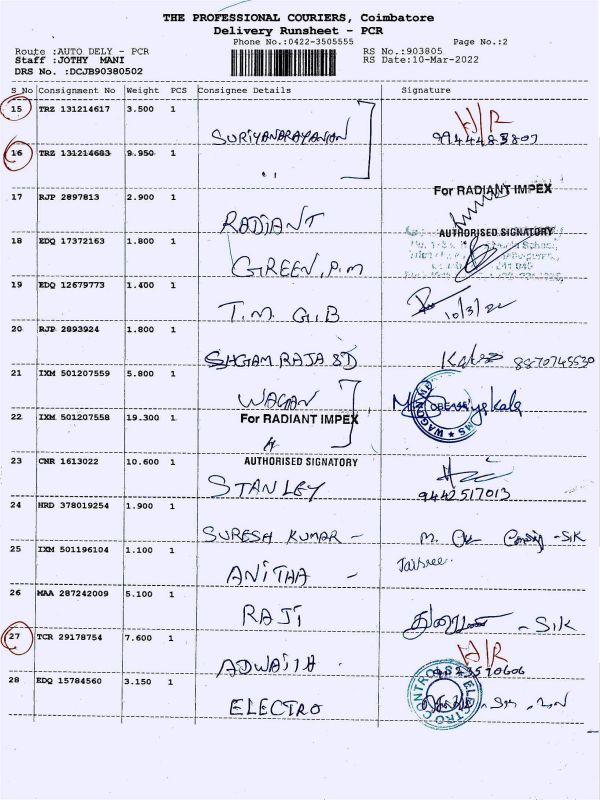 THE PROFESSIONAL COURIERS, Coimbatore
Delivery Runsheet - PCR
Phone No.:0422-3505555
Page No.:2
Route :AUTO DELY - PCR
RS No.:903805
Staff :JOTHY MANI
RS Date:10-Mar-2022
DRS No. :DCJB90380502
S No Consignment No Weight PCS Consignee Details Signature
15 TRZ 131214617 3.500 1
SURIYANARAYANAN
16 TRZ 131214683 9.950 1
"
17 RJP 2897813 2.900 1
For RADIANT IMPEX
RADIANT
AUTHORISED SIGNATORY
18 EDQ 17372163 1.800 1
GREEN, P.M
19 EDQ 12679773 1.400 1
T.M. G.B 10/3/22
20 RJP 2893924 1.800 1
SHGAM RAJA SD 8870745530
21 IXM 501207559 5.800 1
WAGAN
22 IXM 501207558 19.300 1
For RADIANT IMPEX
AUTHORISED SIGNATORY
23 CNR 1613022 10.600 1
STANLEY 9442517013
24 HRD 378019254 1.900 1
SURESH KUMAR -
25 IXM 501196104 1.100 1
Jaisree.
ANITHA -
26 MAA 287242009 5.100 1
RAJI - SIK
27 TCR 29178754 7.600 1
28 EDQ 15784560 3.150 1
ELECTRO